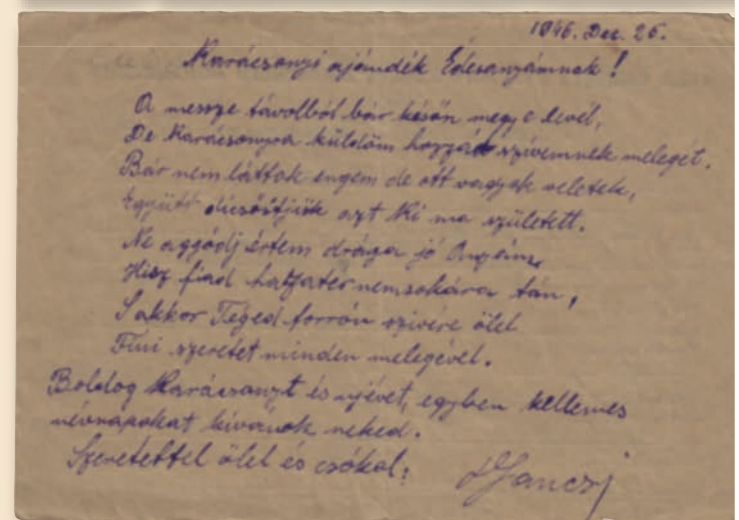 1946. Dec. 25.
Karácsonyi ajándék Édesanyámnak!
A messze távolból bár későn megy e levél,
De Karácsonyra küldöm hozzád szívemnek melegét.
Bár nem láttok engem de ott vagyok veletek,
Együtt dicsőitjük azt ki ma született.
Ne aggódj értem drága jó Anyám,
Hisz fiad hazatér nemsokára tán,
S akkor Téged forrón szivére ölel
Fiui szeretet minden melegével.
Boldog Karácsonyt és ujévet, egyben kellemes
névnapokat kívánok neked.
Szeretettel ölel és csókol:
Jancsi